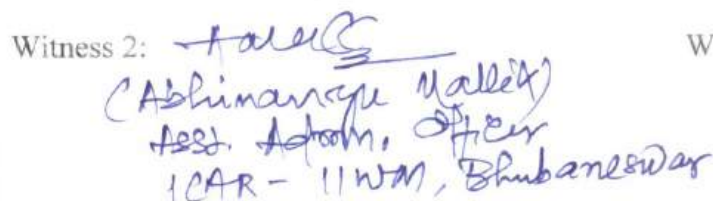 Witness 2: W
(Abhimanyu Mallik)
Asst. Admn. Officer
ICAR - IIWM, Bhubaneswar